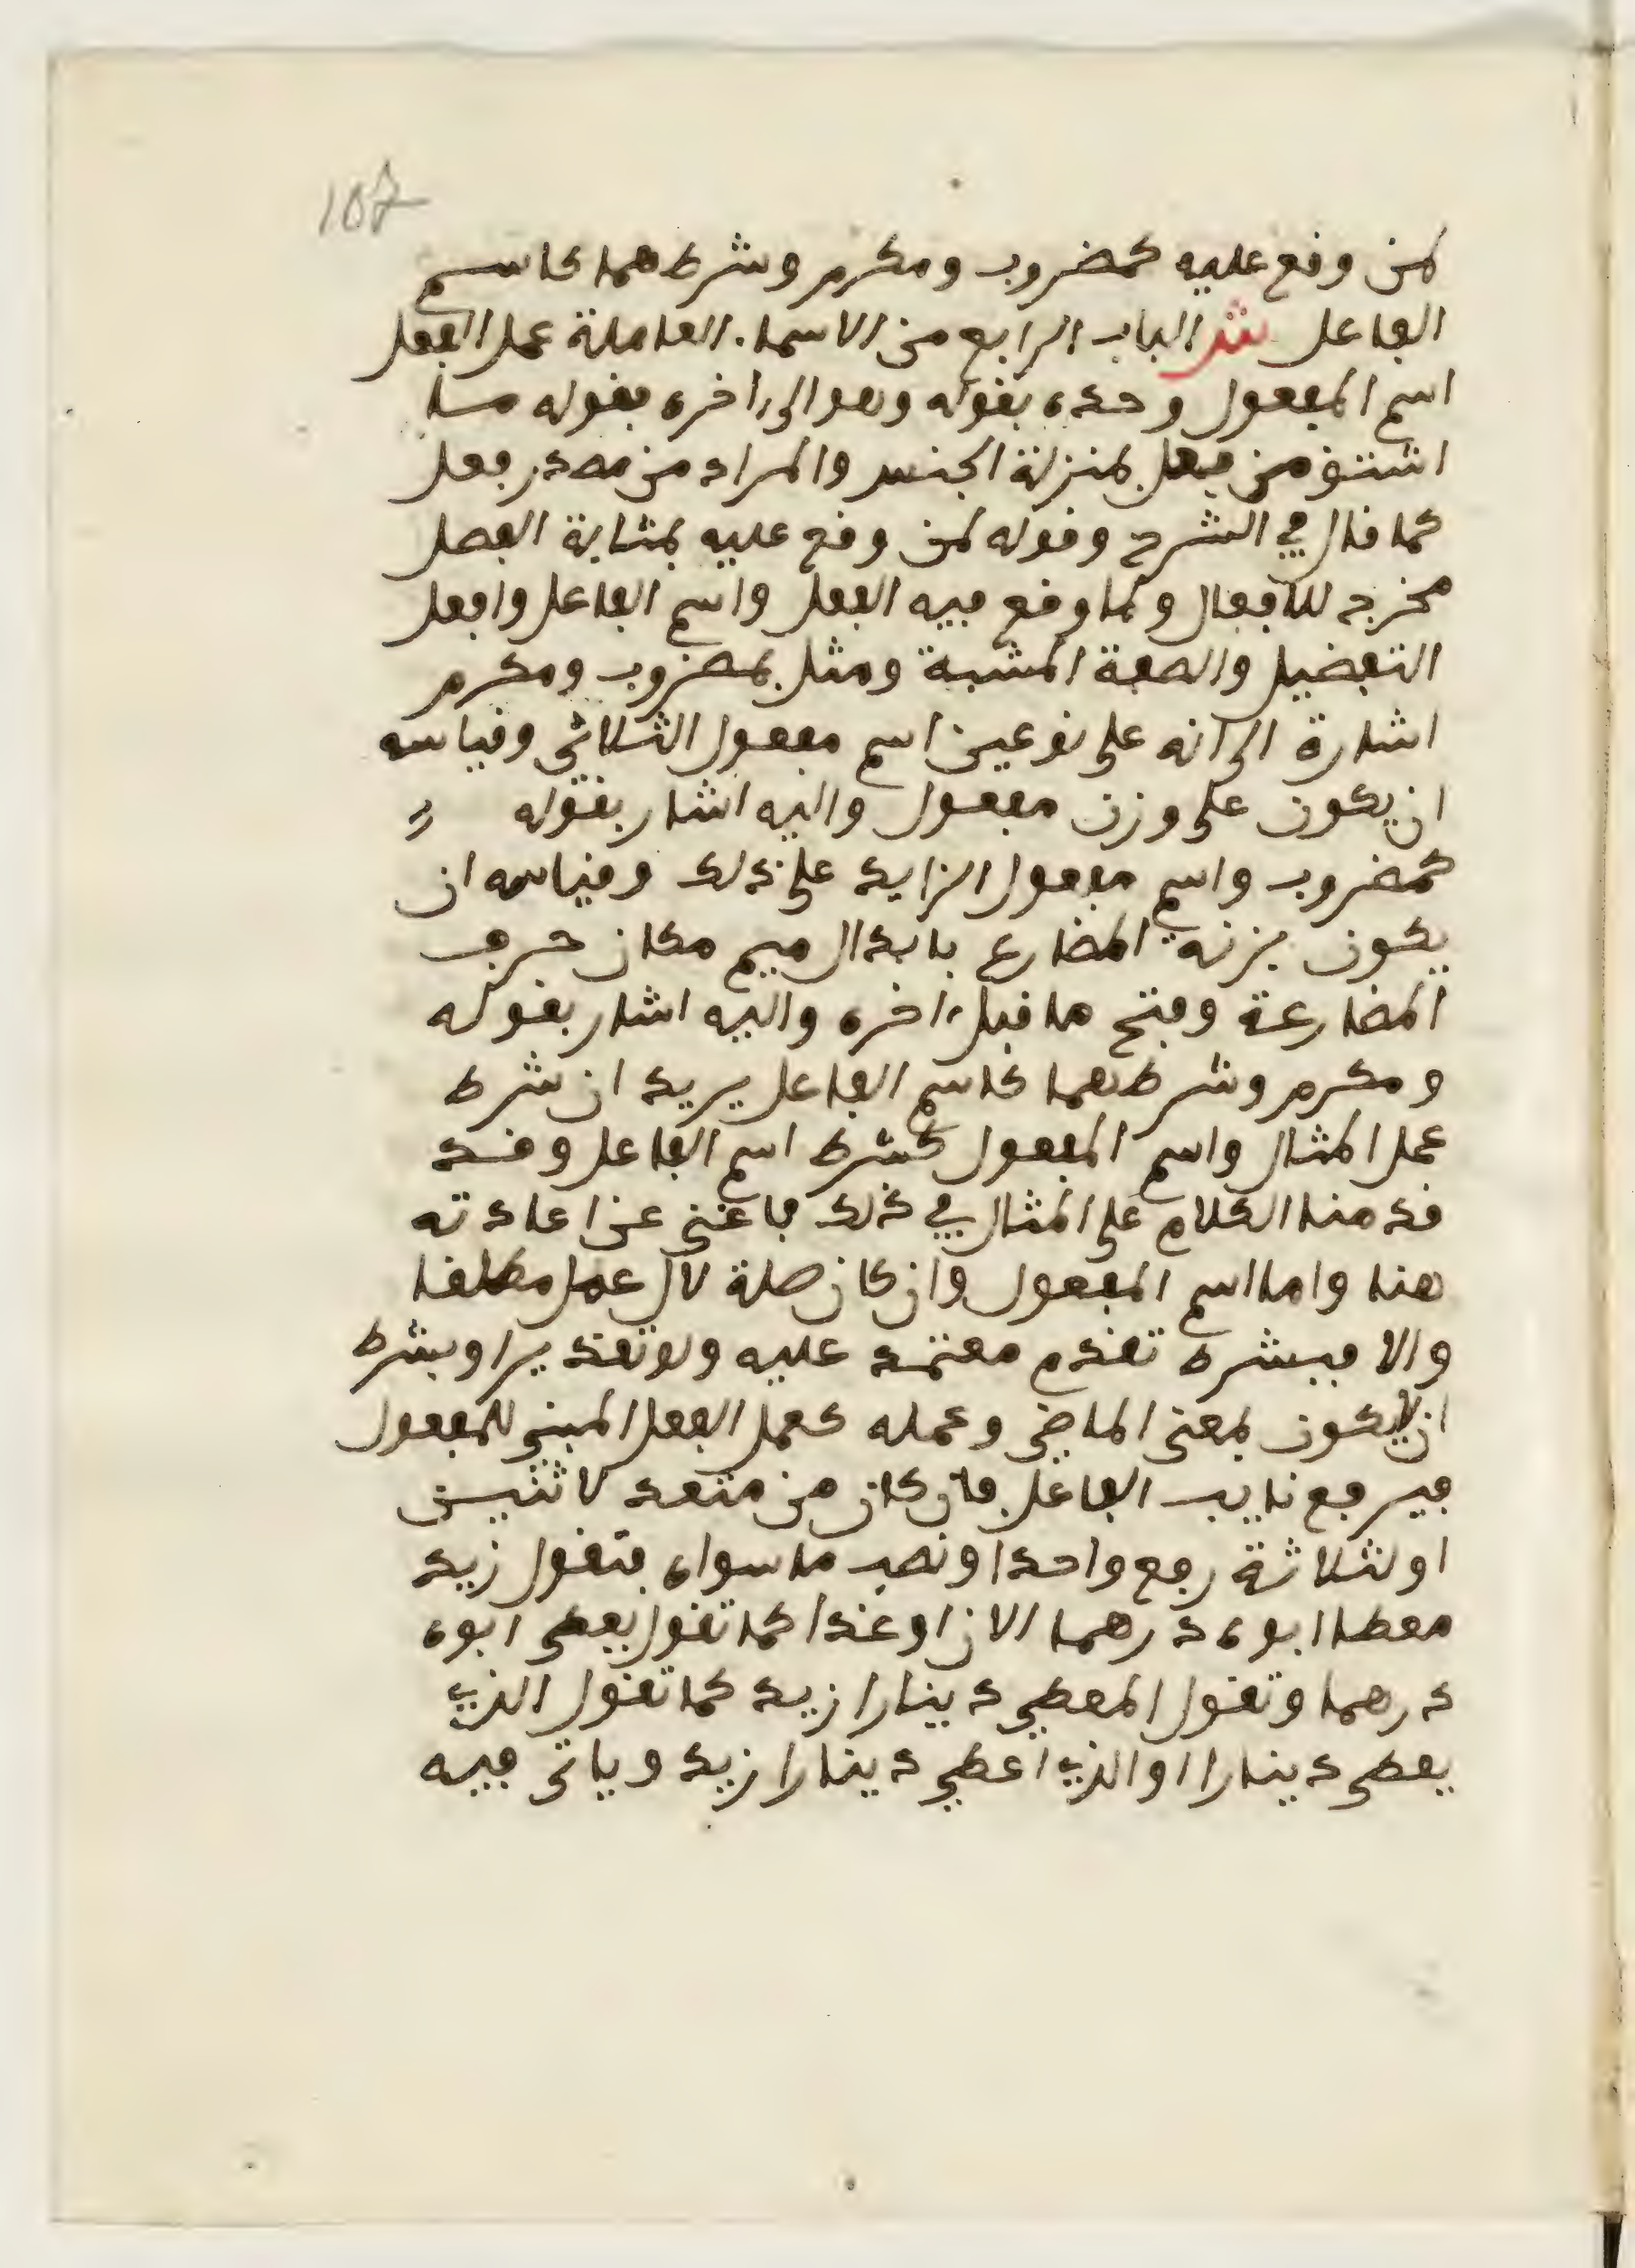 107
لمن وقع عليه كمضروب ومكرم وشرطهما كاسم
الفاعل ش الباب الرابع من الاسماء العاملة عمل الفعل
اسم المفعول وحده بقوله وهو الى ءاخره فقوله ما
اشتق من فعل بمنزلة الجنس والمراد من مصدر فعل
كما قال في الشرح وقوله لمن وقع عليه بمثابة الفصل
مخرج للافعال ولما وقع فيه الفعل واسم الفاعل وافعل
التفضيل والصفة المشبهة ومثل بمضروب ومكرم
اشارة الى انه على نوعين اسم مفعول الثلاثي وقياسه
ان يكون على وزن مفعول واليه اشار بقوله
كمضروب واسم مفعول الزايد على ذلك وقياسه ان
يكون بزنة المضارع بابدال ميم مكان حرف
المضارعة وفتح ما قبل ءاخره واليه اشار بقوله
ومكرم وشرطهما كاسم الفاعل يريد ان شرط
عمل المثال واسم المفعول كشرط اسم الفاعل وقد
قدمنا الكلام على المثال في ذلك فاغنى عن اعادته
هنا واما اسم المفعول وان كان صلة لال عمل مطلقا
والا فبشرط تقدم معتمد عليه ولو تقديرا وبشرط
ان لا يكون بمعنى الماضي وعمله كعمل الفعل المبني للمفعول
فيرفع نايب الفاعل فان كان من متعد لاثنين
او لثلاثة رفع واحدا ونصب ما سواه فتقول زيد
معطا ابوه درهما الان او غدا كما تقول يعطى ابوه
درهما وتقول المعطى دينارا زيد كما تقول الذي
يعطى دينارا او الذي اعطي دينارا زيد وياتي فيه